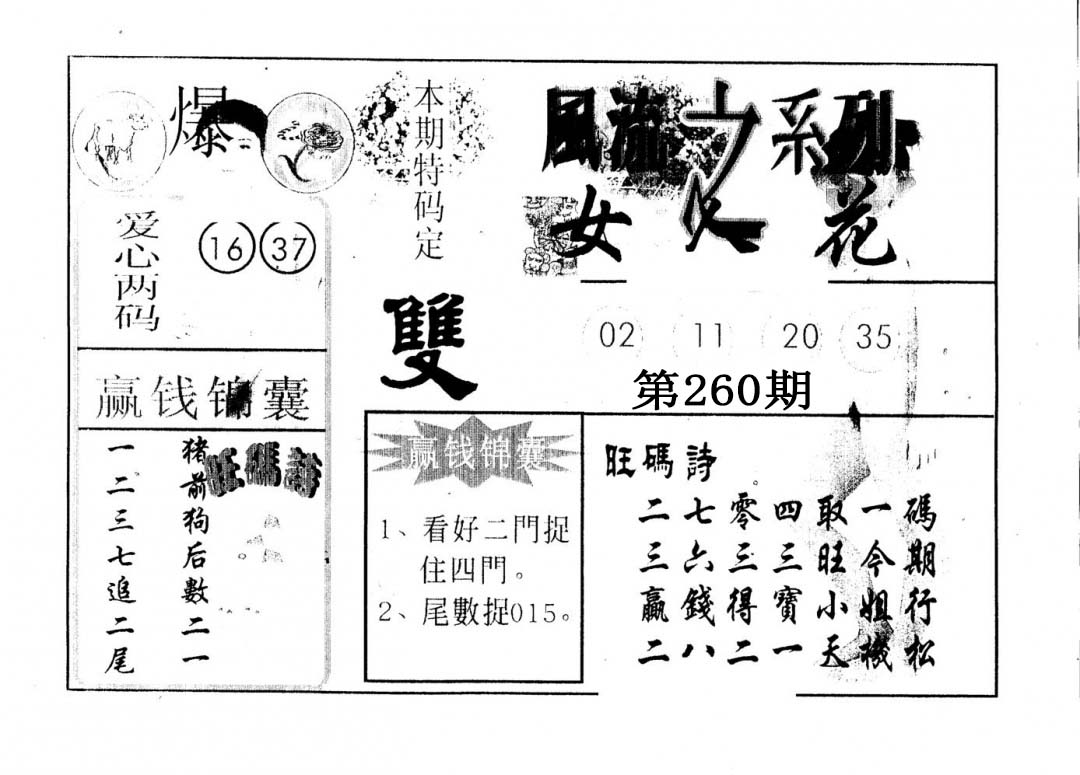 爆
本期特码定
雙
風流之系列
女人花
爱心两码
16 37
02 11 20 35
第260期
赢钱锦囊
猪前狗后數二一
一二三七追二尾
旺碼詩
赢钱锦囊
1、看好二門捉
住四門。
2、尾數捉015。
旺碼詩
二七零四取一碼
三六三三旺今期
贏錢得寶小姐行
二八二一天機松